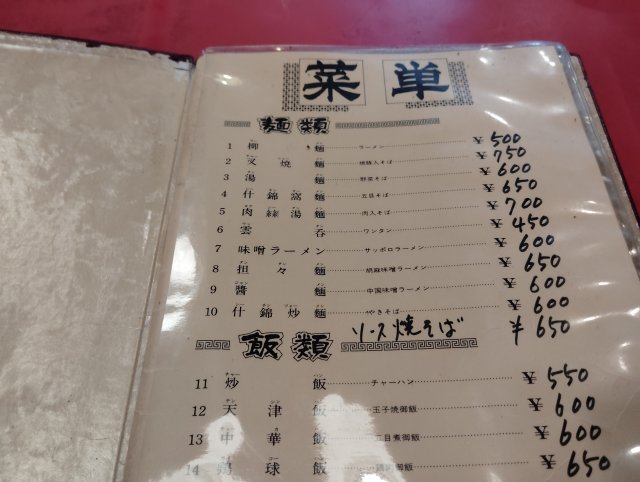 菜単
麺類
1 柳麺 ラーメン ¥500
2 叉焼麺 焼豚入そば ¥750
3 湯麺 野菜そば ¥600
4 什錦窩麺 五目そば ¥650
5 肉絲湯麺 肉入そば ¥700
6 雲呑 ワンタン ¥450
7 味噌ラーメン サッポロラーメン ¥600
8 担々麺 胡麻味噌ラーメン ¥650
9 醬麺 中国味噌ラーメン ¥600
10 什錦炒麺 やきそば ¥600
ソース焼そば ¥650
飯類
11 炒飯 チャーハン ¥550
12 天津飯 玉子焼御飯 ¥600
13 中華飯 五目煮御飯 ¥600
14 鶏球飯 ¥650